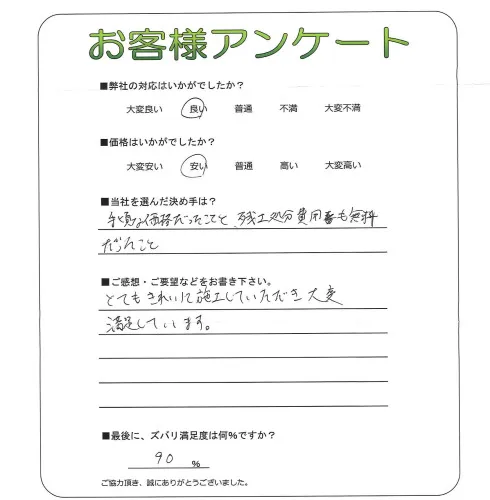 お客様アンケート
■弊社の対応はいかがでしたか？
大変良い 良い 普通 不満 大変不満
■価格はいかがでしたか？
大変安い 安い 普通 高い 大変高い
■当社を選んだ決め手は？
手頃な価格だったこと、残土処分費用も無料
だったこと
■ご感想・ご要望などをお書き下さい。
とてもきれいに施工していただき大変
満足しています。
■最後に、ズバリ満足度は何％ですか？
90 ％
ご協力頂き、誠にありがとうございました。